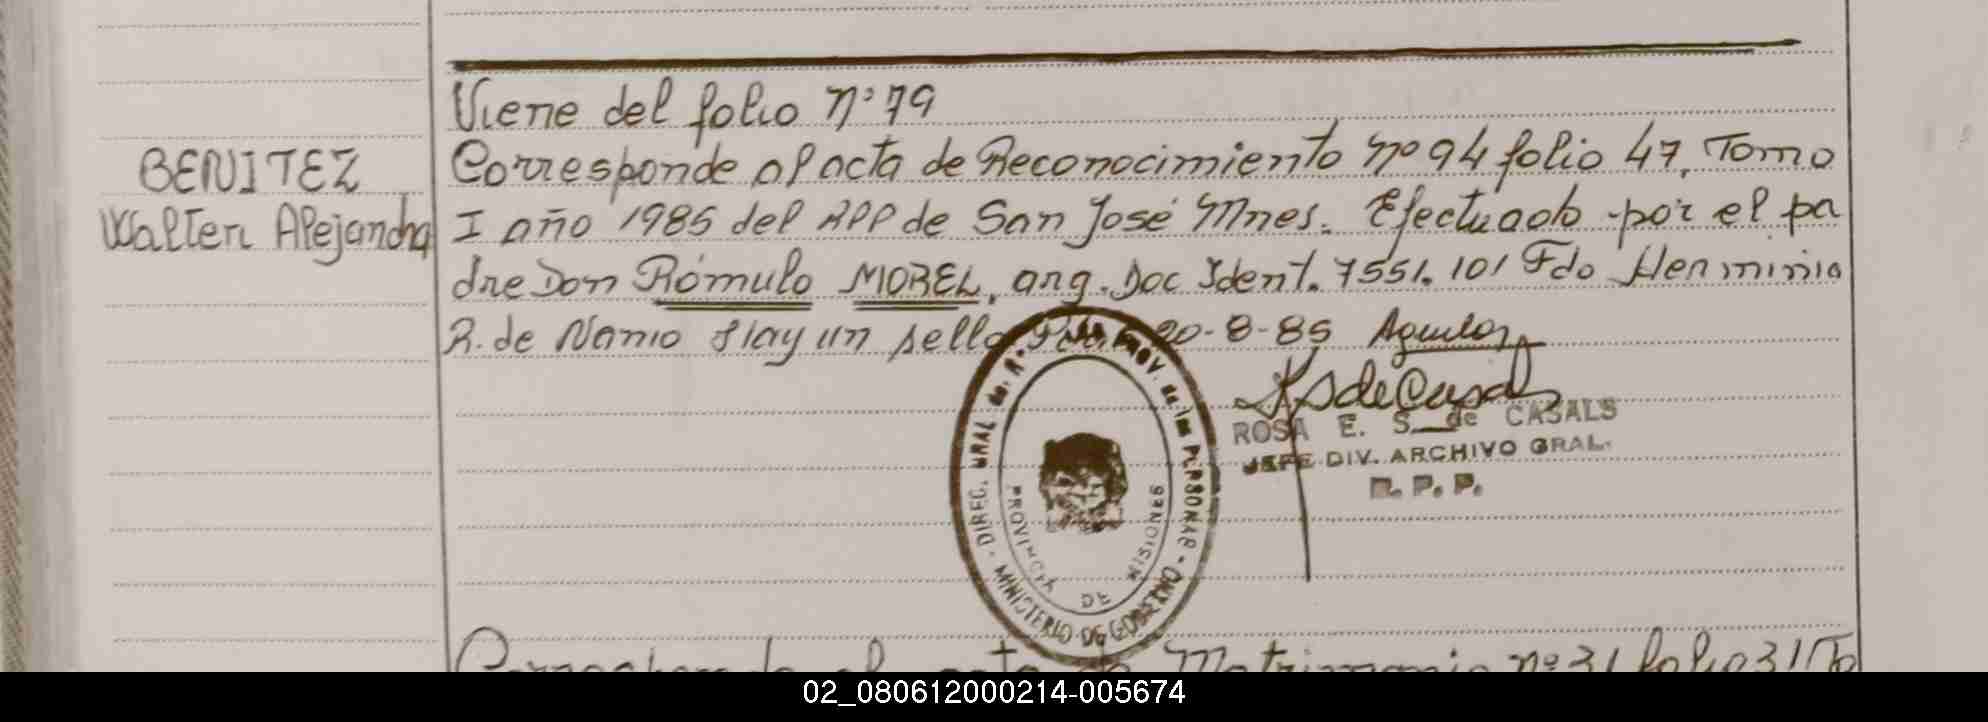 Viene del folio nº 79
BENITEZ
Walter Alejandro
Corresponde al acta de Reconocimiento nº 94 folio 47, Tomo
I año 1985 del RPP de San José Mnes. Efectuado por el pa
dre Don Rómulo MOREL, arg. Doc Ident. 7551.101 Fdo Herminia
R. de Nanio Hay un sello 20-8-85 Aguilar
ROSA E. S. de CASALS
JEFE DIV. ARCHIVO GRAL.
R. P. P.
DIREC. GRAL. de. Rº PROV. de las PERSONAS
MINISTERIO DE GOBIERNO
PROVINCIA DE MISIONES
Corresponde al acta de Matrimonio nº 31 folio 31 To
02_080612000214-005674